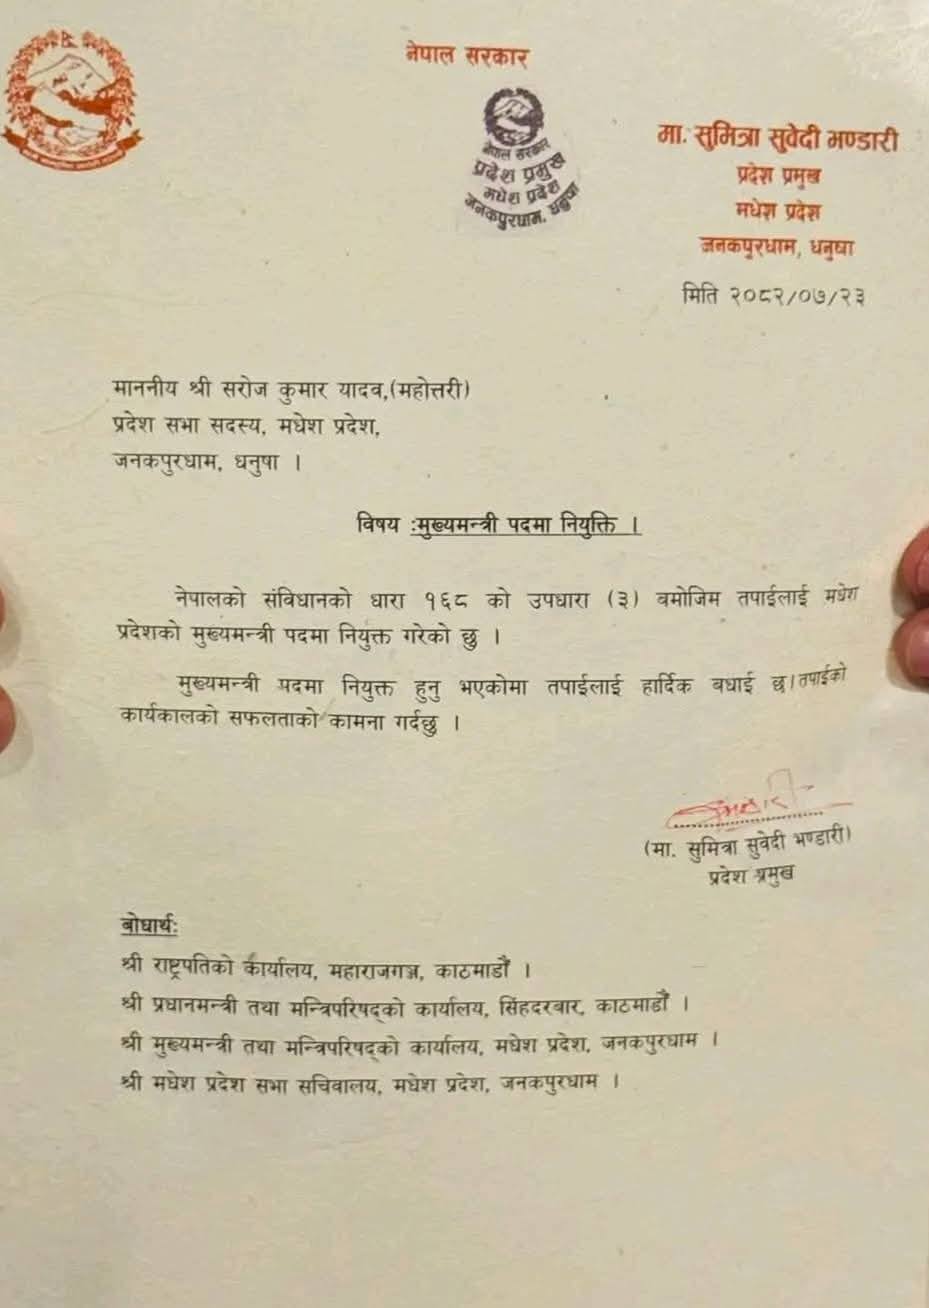 नेपाल सरकार
नेपाल सरकार
प्रदेश प्रमुख
मधेश प्रदेश
जनकपुरधाम, धनुषा
मा. सुमित्रा सुवेदी भण्डारी
प्रदेश प्रमुख
मधेश प्रदेश
जनकपुरधाम, धनुषा
मिति २०८२/०७/२३
माननीय श्री सरोज कुमार यादव,(महोत्तरी)
प्रदेश सभा सदस्य, मधेश प्रदेश,
जनकपुरधाम, धनुषा ।
विषय :मुख्यमन्त्री पदमा नियुक्ति ।
नेपालको संविधानको धारा १६८ को उपधारा (३) बमोजिम तपाईलाई मधेश
प्रदेशको मुख्यमन्त्री पदमा नियुक्त गरेको छु ।
मुख्यमन्त्री पदमा नियुक्त हुनु भएकोमा तपाईलाई हार्दिक बधाई छ। तपाईको
कार्यकालको सफलताको कामना गर्दछु ।
(मा. सुमित्रा सुवेदी भण्डारी)
प्रदेश प्रमुख
बोधार्थ:
श्री राष्ट्रपतिको कार्यालय, महाराजगञ्ज, काठमाडौं ।
श्री प्रधानमन्त्री तथा मन्त्रिपरिषद्को कार्यालय, सिंहदरबार, काठमाडौं ।
श्री मुख्यमन्त्री तथा मन्त्रिपरिषद्को कार्यालय, मधेश प्रदेश, जनकपुरधाम ।
श्री मधेश प्रदेश सभा सचिवालय, मधेश प्रदेश, जनकपुरधाम ।